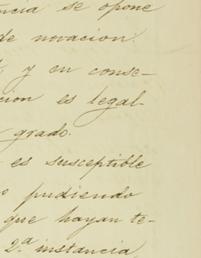 ncia se opone
de novacion.
y en conse-
cion es legal-
grado.
es susceptible
pudiendo
que hayan te-
2.ª instancia